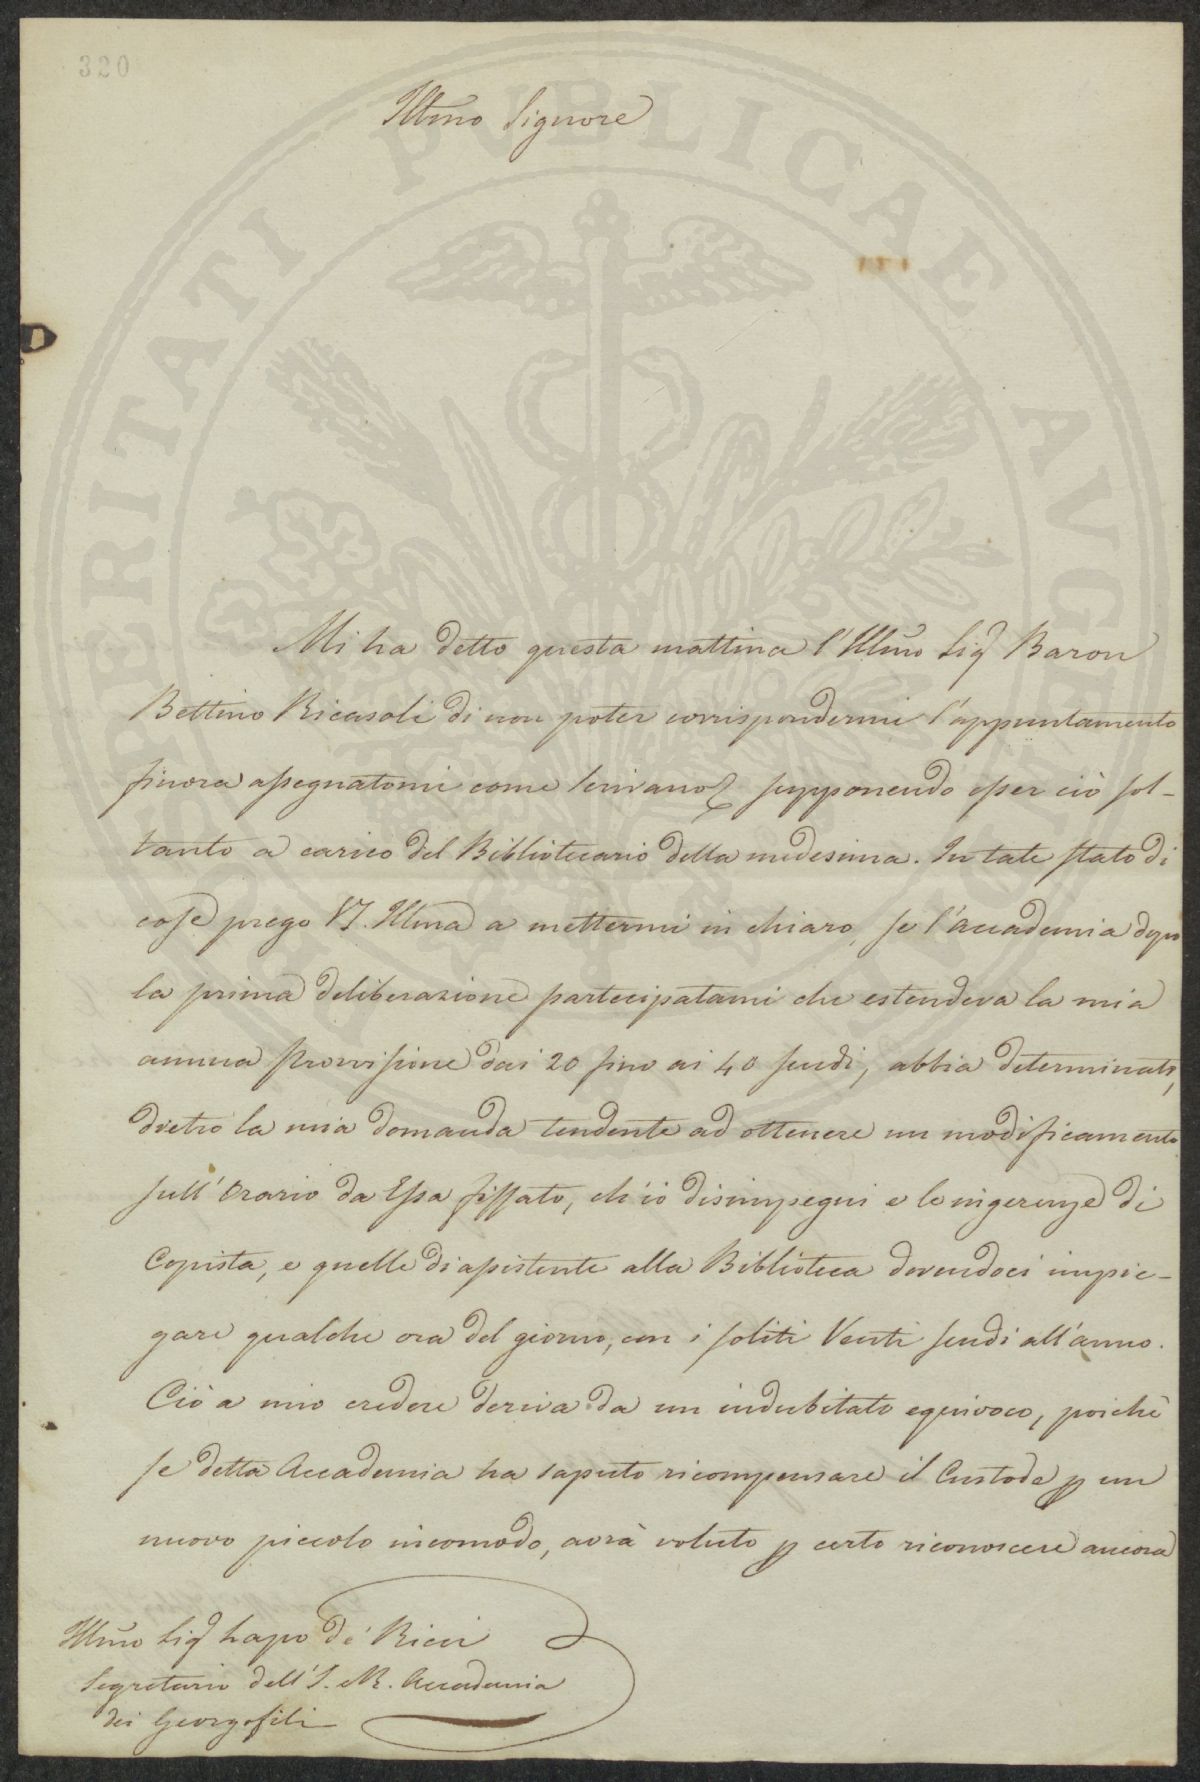 320
Illmo Signore
Mi ha detto questa mattina l'Illmo Sig Baron
Bettino Ricasoli di non poter corrispondermi l'appuntamento
finora assegnatomi come Scrivano, supponendo esser ciò sol-
tanto a carico del Bibliotecario della medesima. In tale stato di
cose prego VS. Illma a mettermi in chiaro, se l'Accademia dopo
la prima deliberazione partecipatami che estendeva la mia
annua Provvisione dai 20 fino ai 40 scudi, abbia determinato,
dietro la mia domanda tendente ad ottenere un modificamento
sull'Orario da Essa fissato, ch'io disimpegni e le ingerenze di
Copista, e quelle di assistente alla Biblioteca dovendoci impie-
gare qualche ora del giorno, con i soliti Venti scudi all'anno.
Ciò a mio credere deriva da un indubitato equivoco, poichè
se detta Accademia ha saputo ricompensare il Custode p un
nuovo piccolo incomodo, avrà voluto p certo riconoscere ancora
Illmo Sig Lapo de' Ricci
Segretario dell'I. e R. Accademia
dei Georgofili
PROSPERITATI PUBLICAE AVGENDAE